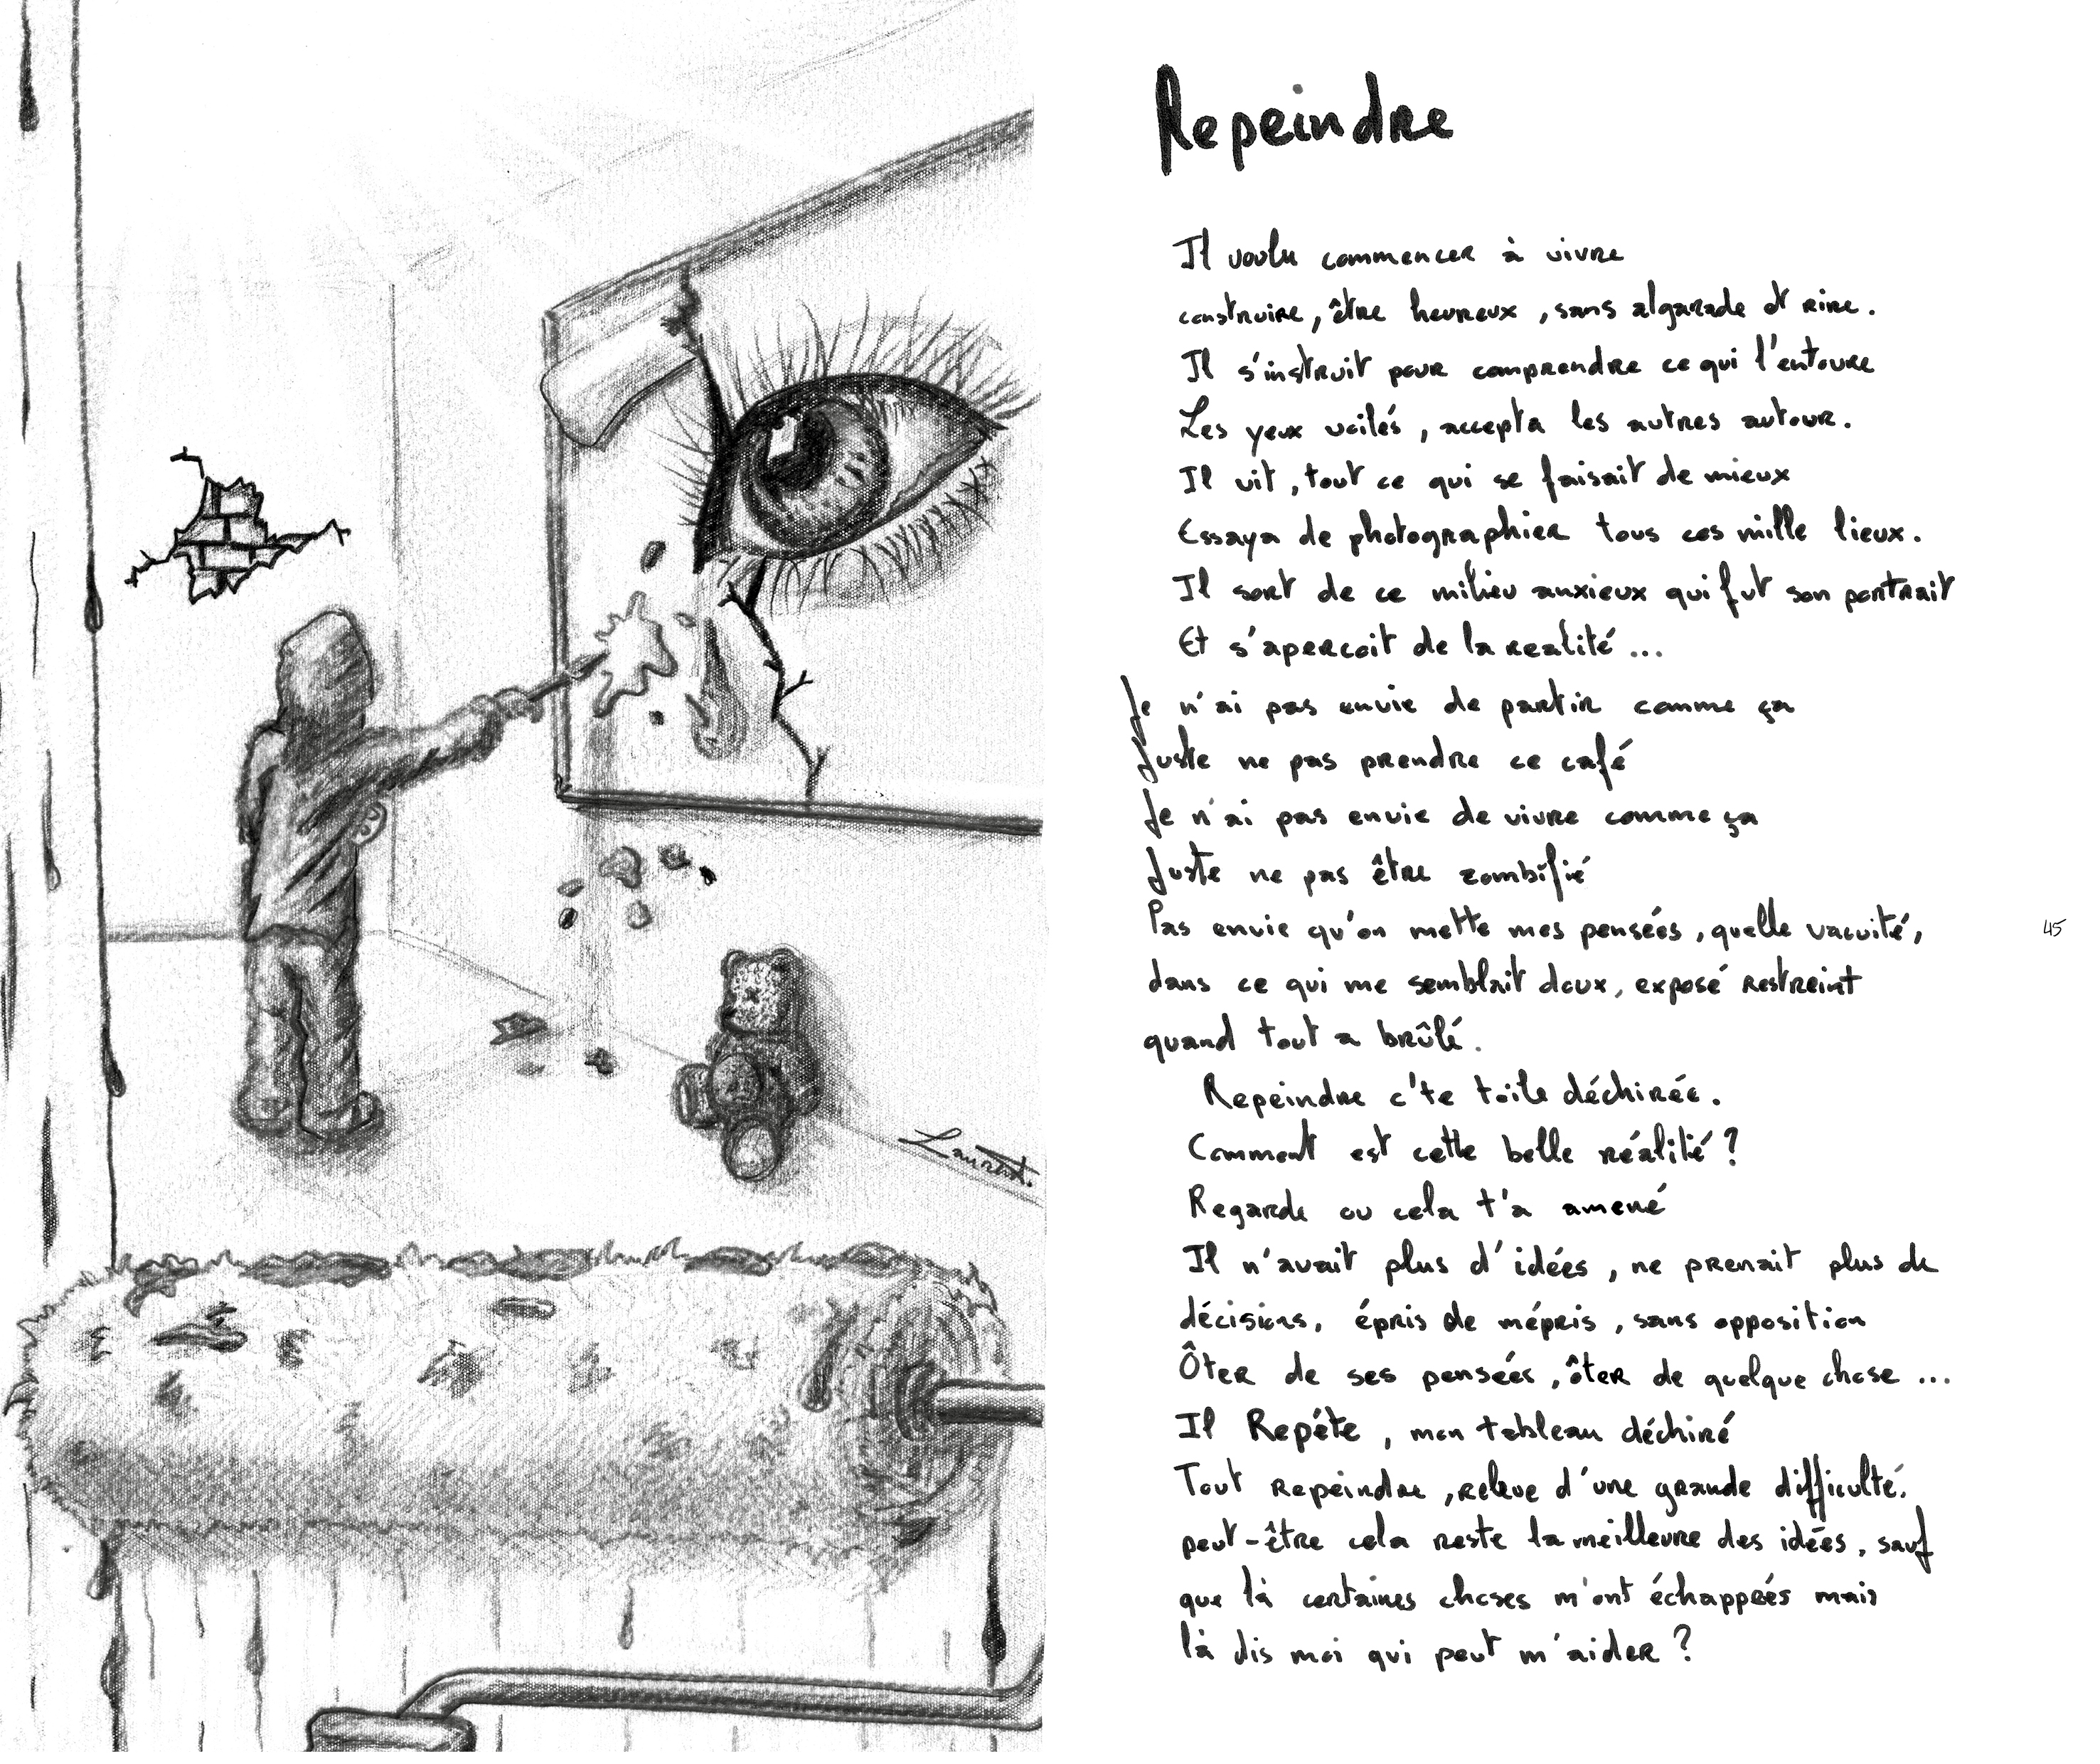 Repeindre
Il voulu commencer à vivre
construire, être heureux, sans algarade et rire.
Il s'instruit pour comprendre ce qui l'entoure
Les yeux voilés, accepta les autres autour.
Il vit, tout ce qui se faisait de mieux
Essaya de photographier tous ces mille lieux.
Il sort de ce milieu anxieux qui fut son portrait
Et s'apercoit de la realité...
Je n'ai pas envie de partir comme ça
Juste ne pas prendre ce café
Je n'ai pas envie de vivre comme ça
Juste ne pas être zombifié
Pas envie qu'on mette mes pensées, quelle vacuité,
dans ce qui me semblait doux, exposé restreint
quand tout a brûlé.
Repeindre c'te toile déchirée.
Comment est cette belle réalité ?
Regarde ou cela t'a amené
Il n'avait plus d'idées, ne prenait plus de
décisions, épris de mépris, sans opposition
Ôter de ses pensées, ôter de quelque chose ...
Il Repéte, mon tableau déchiré
Tout repeindre, releve d'une grande difficulté.
peut-être cela reste la meilleure des idées, sauf
que là certaines choses m'ont échappées mais
là dis moi qui peut m'aider ?
45
Laurent.